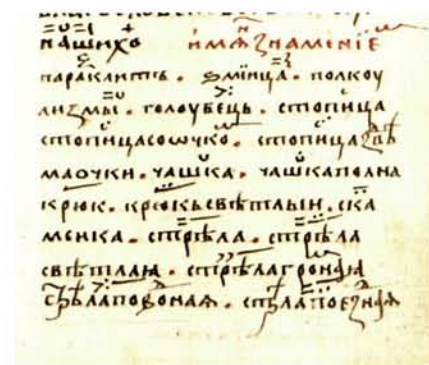 нашихъ имѧзнаменїе
параклитъ . ѕмїица . полкоу
лизмы . голоубець . стопица
стопицасоѡчко . стопицаздвѣ
маочки . чашка . чашкаполна
крюк . крюкьсвѣтлыи . ска
меика . стрѣла . стрѣла
свѣтлаꙗ . стрѣлагромнаꙗ
стрѣлаповоднаѧ . стрѣлапоезднаѧ